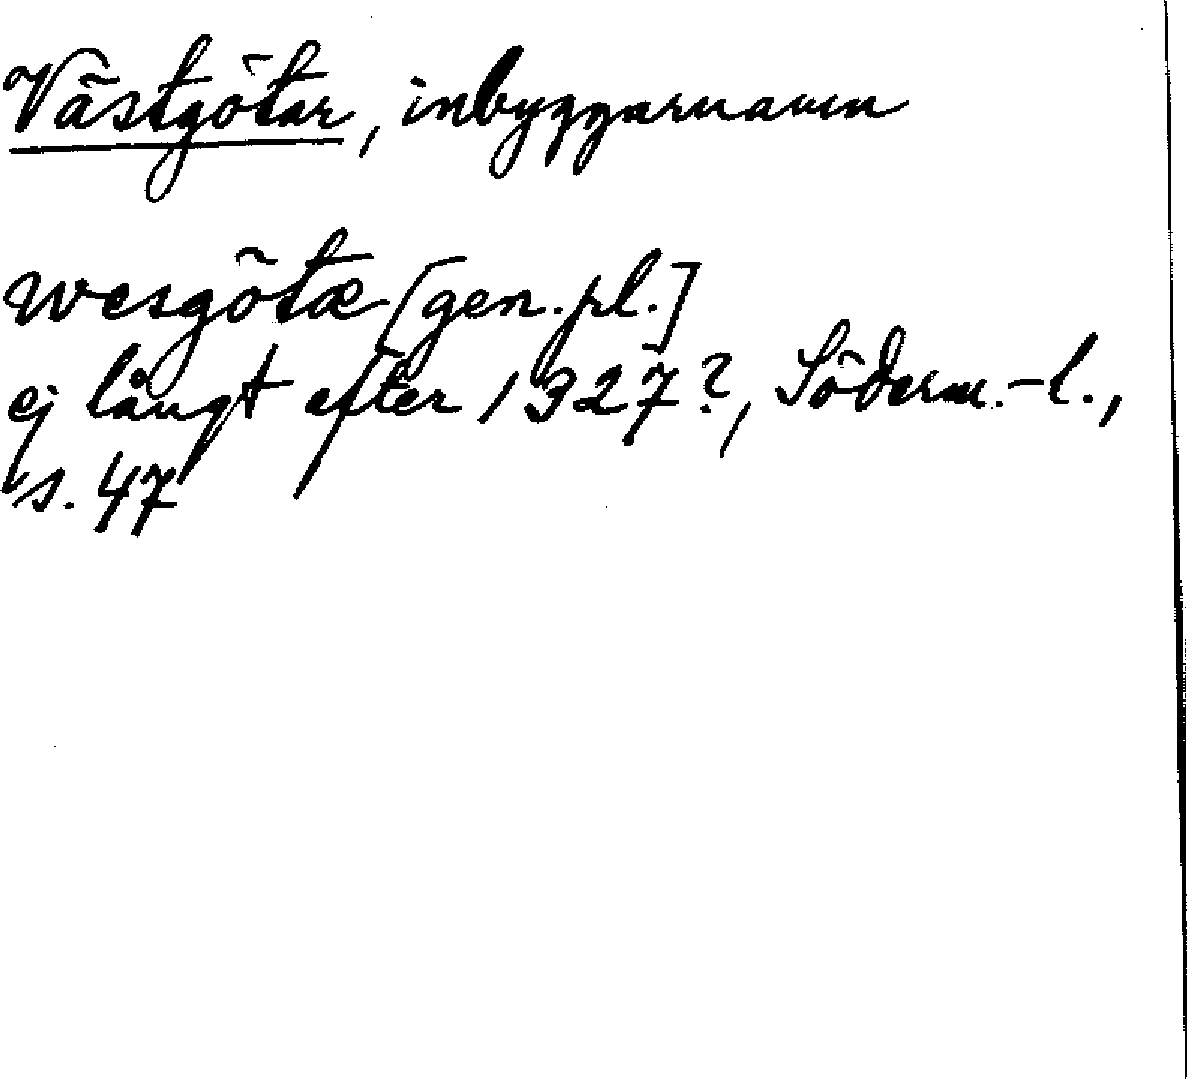 Västgötar, inbyggarnamn
wesgötæ [gen. pl.]
ej långt efter 1327?, Söderm.-l.,
s. 47